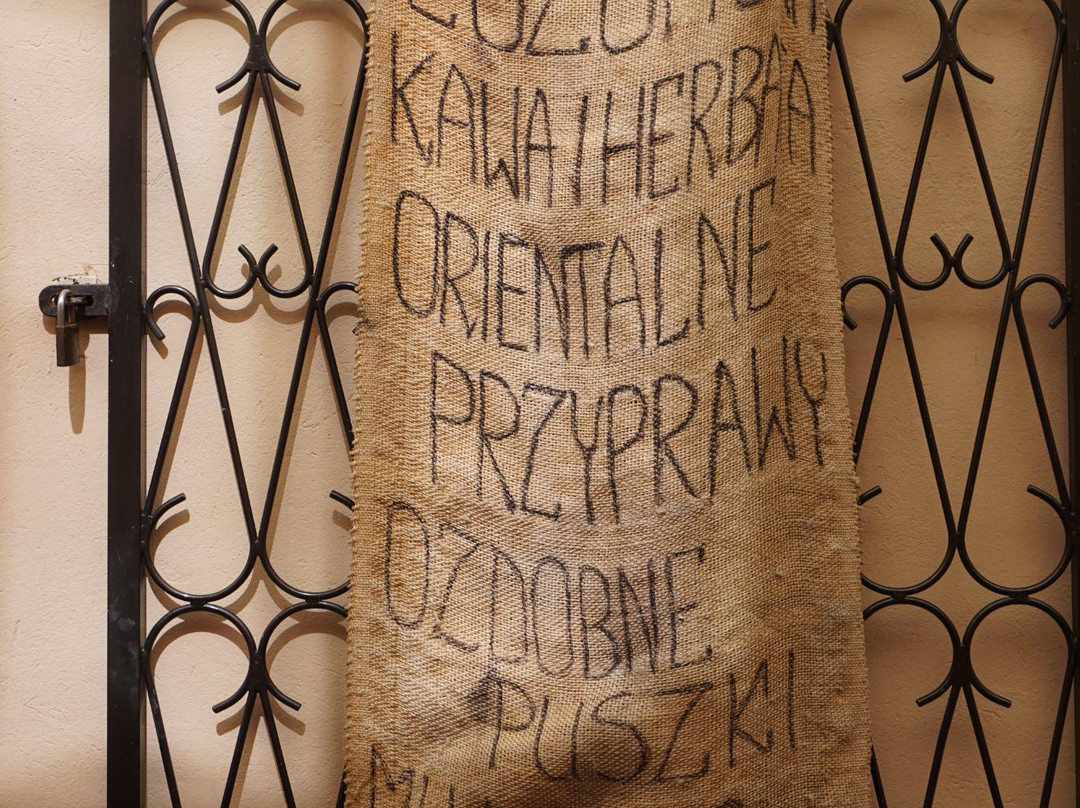 KAWA I HERBATA
ORIENTALNE
PRZYPRAWY
OZDOBNE
PUSZKI